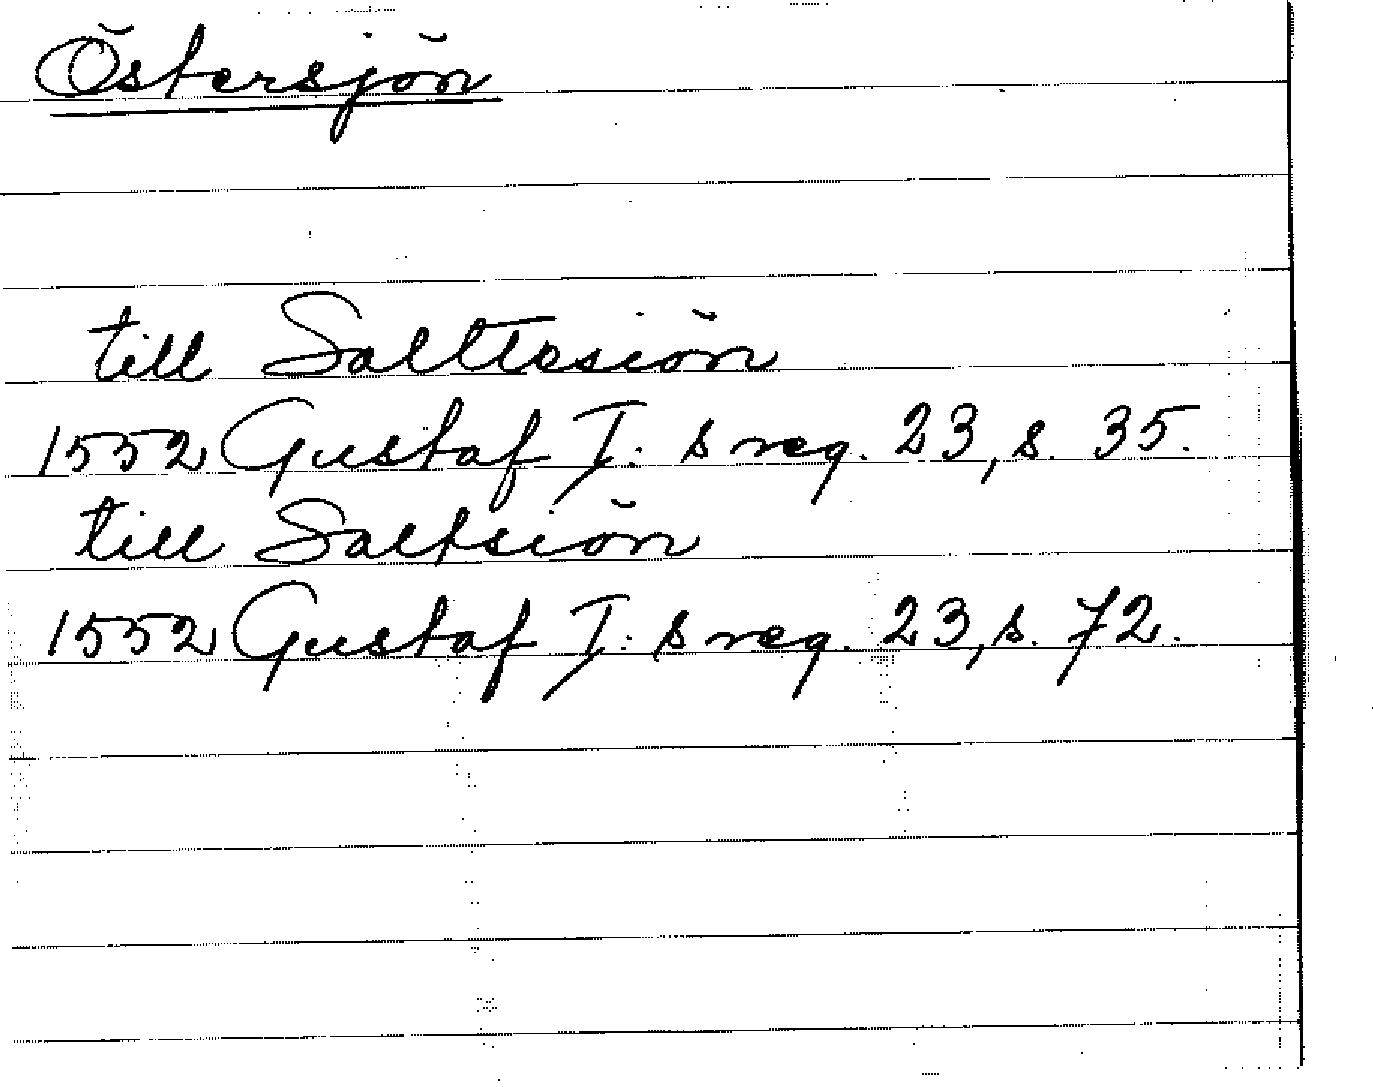 Östersjön
till Salttesiön
1552 Gustaf I: s reg. 23, s. 35.
till Saltsiön
1552 Gustaf I: s reg. 23, s. 72.